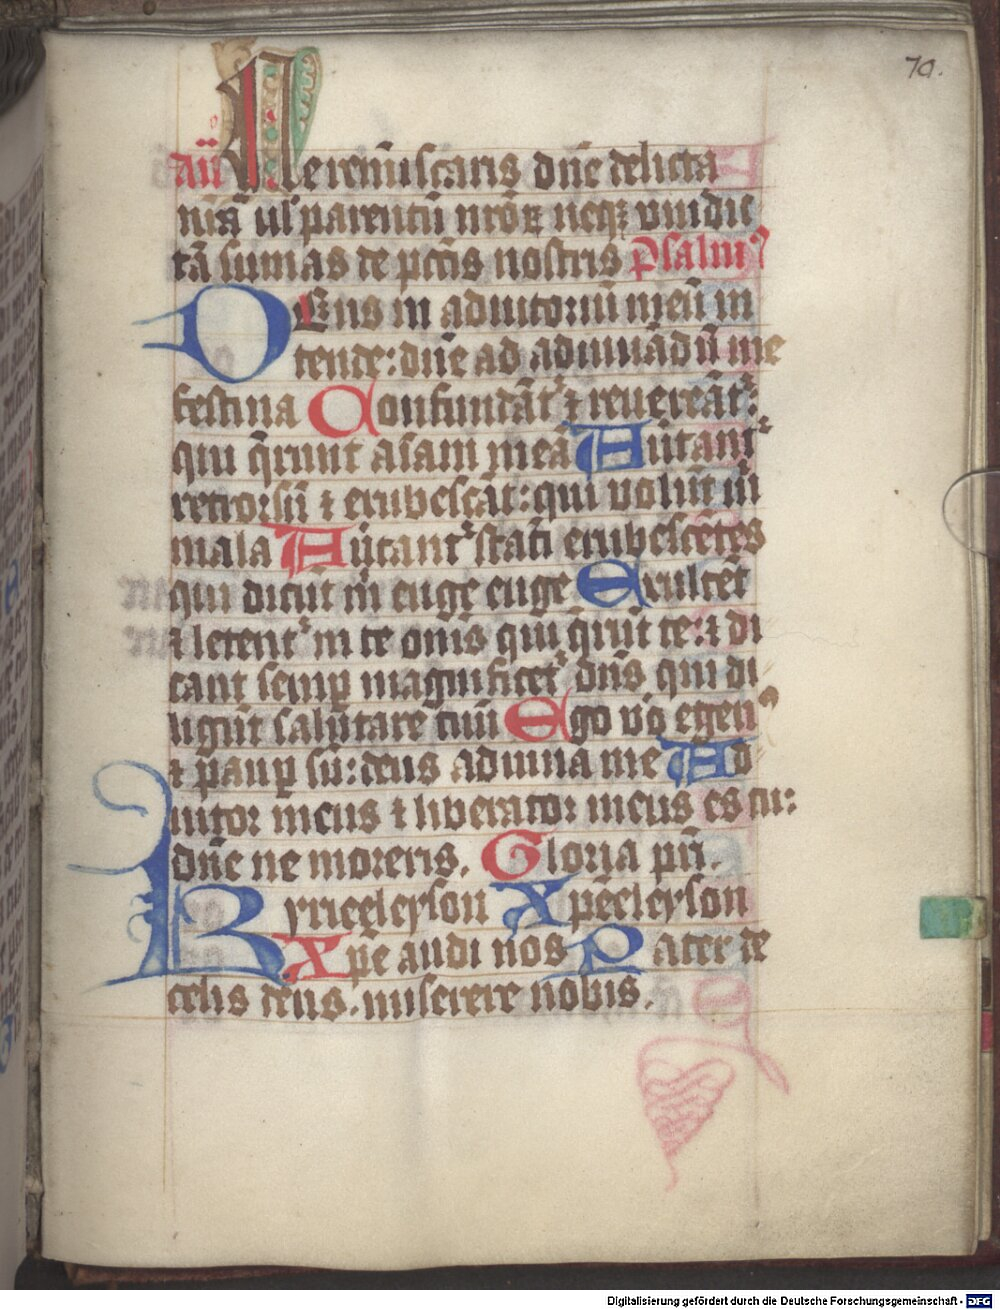 70.
añ Ne remīscaris dn̄e delicta
nr̄a ul' parentū nr̄oꝝ neqꝫ vindic
tā sumas de pctīs nostris Psalmꝰ
DEus in adiutoriū meū in
tende: dn̄e ad adiuuādū me
festina Confundāt᷑ ⁊ reuereāt᷑:
qui q̄runt aīam meā Au̇tant᷑
retrorsū ⁊ erubescāt: qui volūt m̄
mala Au̇tant᷑ statī erubescētes
qui dicūt m̄ euge euge Exultēt
⁊ letent᷑ in te om̄s qui q̄rūt te: ⁊ di
cant semꝑ magnificet᷑ dn̄s qui di
ligūt salutare tuū Ego v̊o egenꝰ
⁊ pauꝑ sū: deus adiuua me Ad
iutor meus ⁊ liberator meus es tu:
dn̄e ne moreris. Gloria pr̄i.
Kyrieeleyson Xp̄eeleyson
Xp̄e audi nos Pater de
celis deus. miserere nobis.
Digitalisierung gefördert durch die Deutsche Forschungsgemeinschaft - DFG